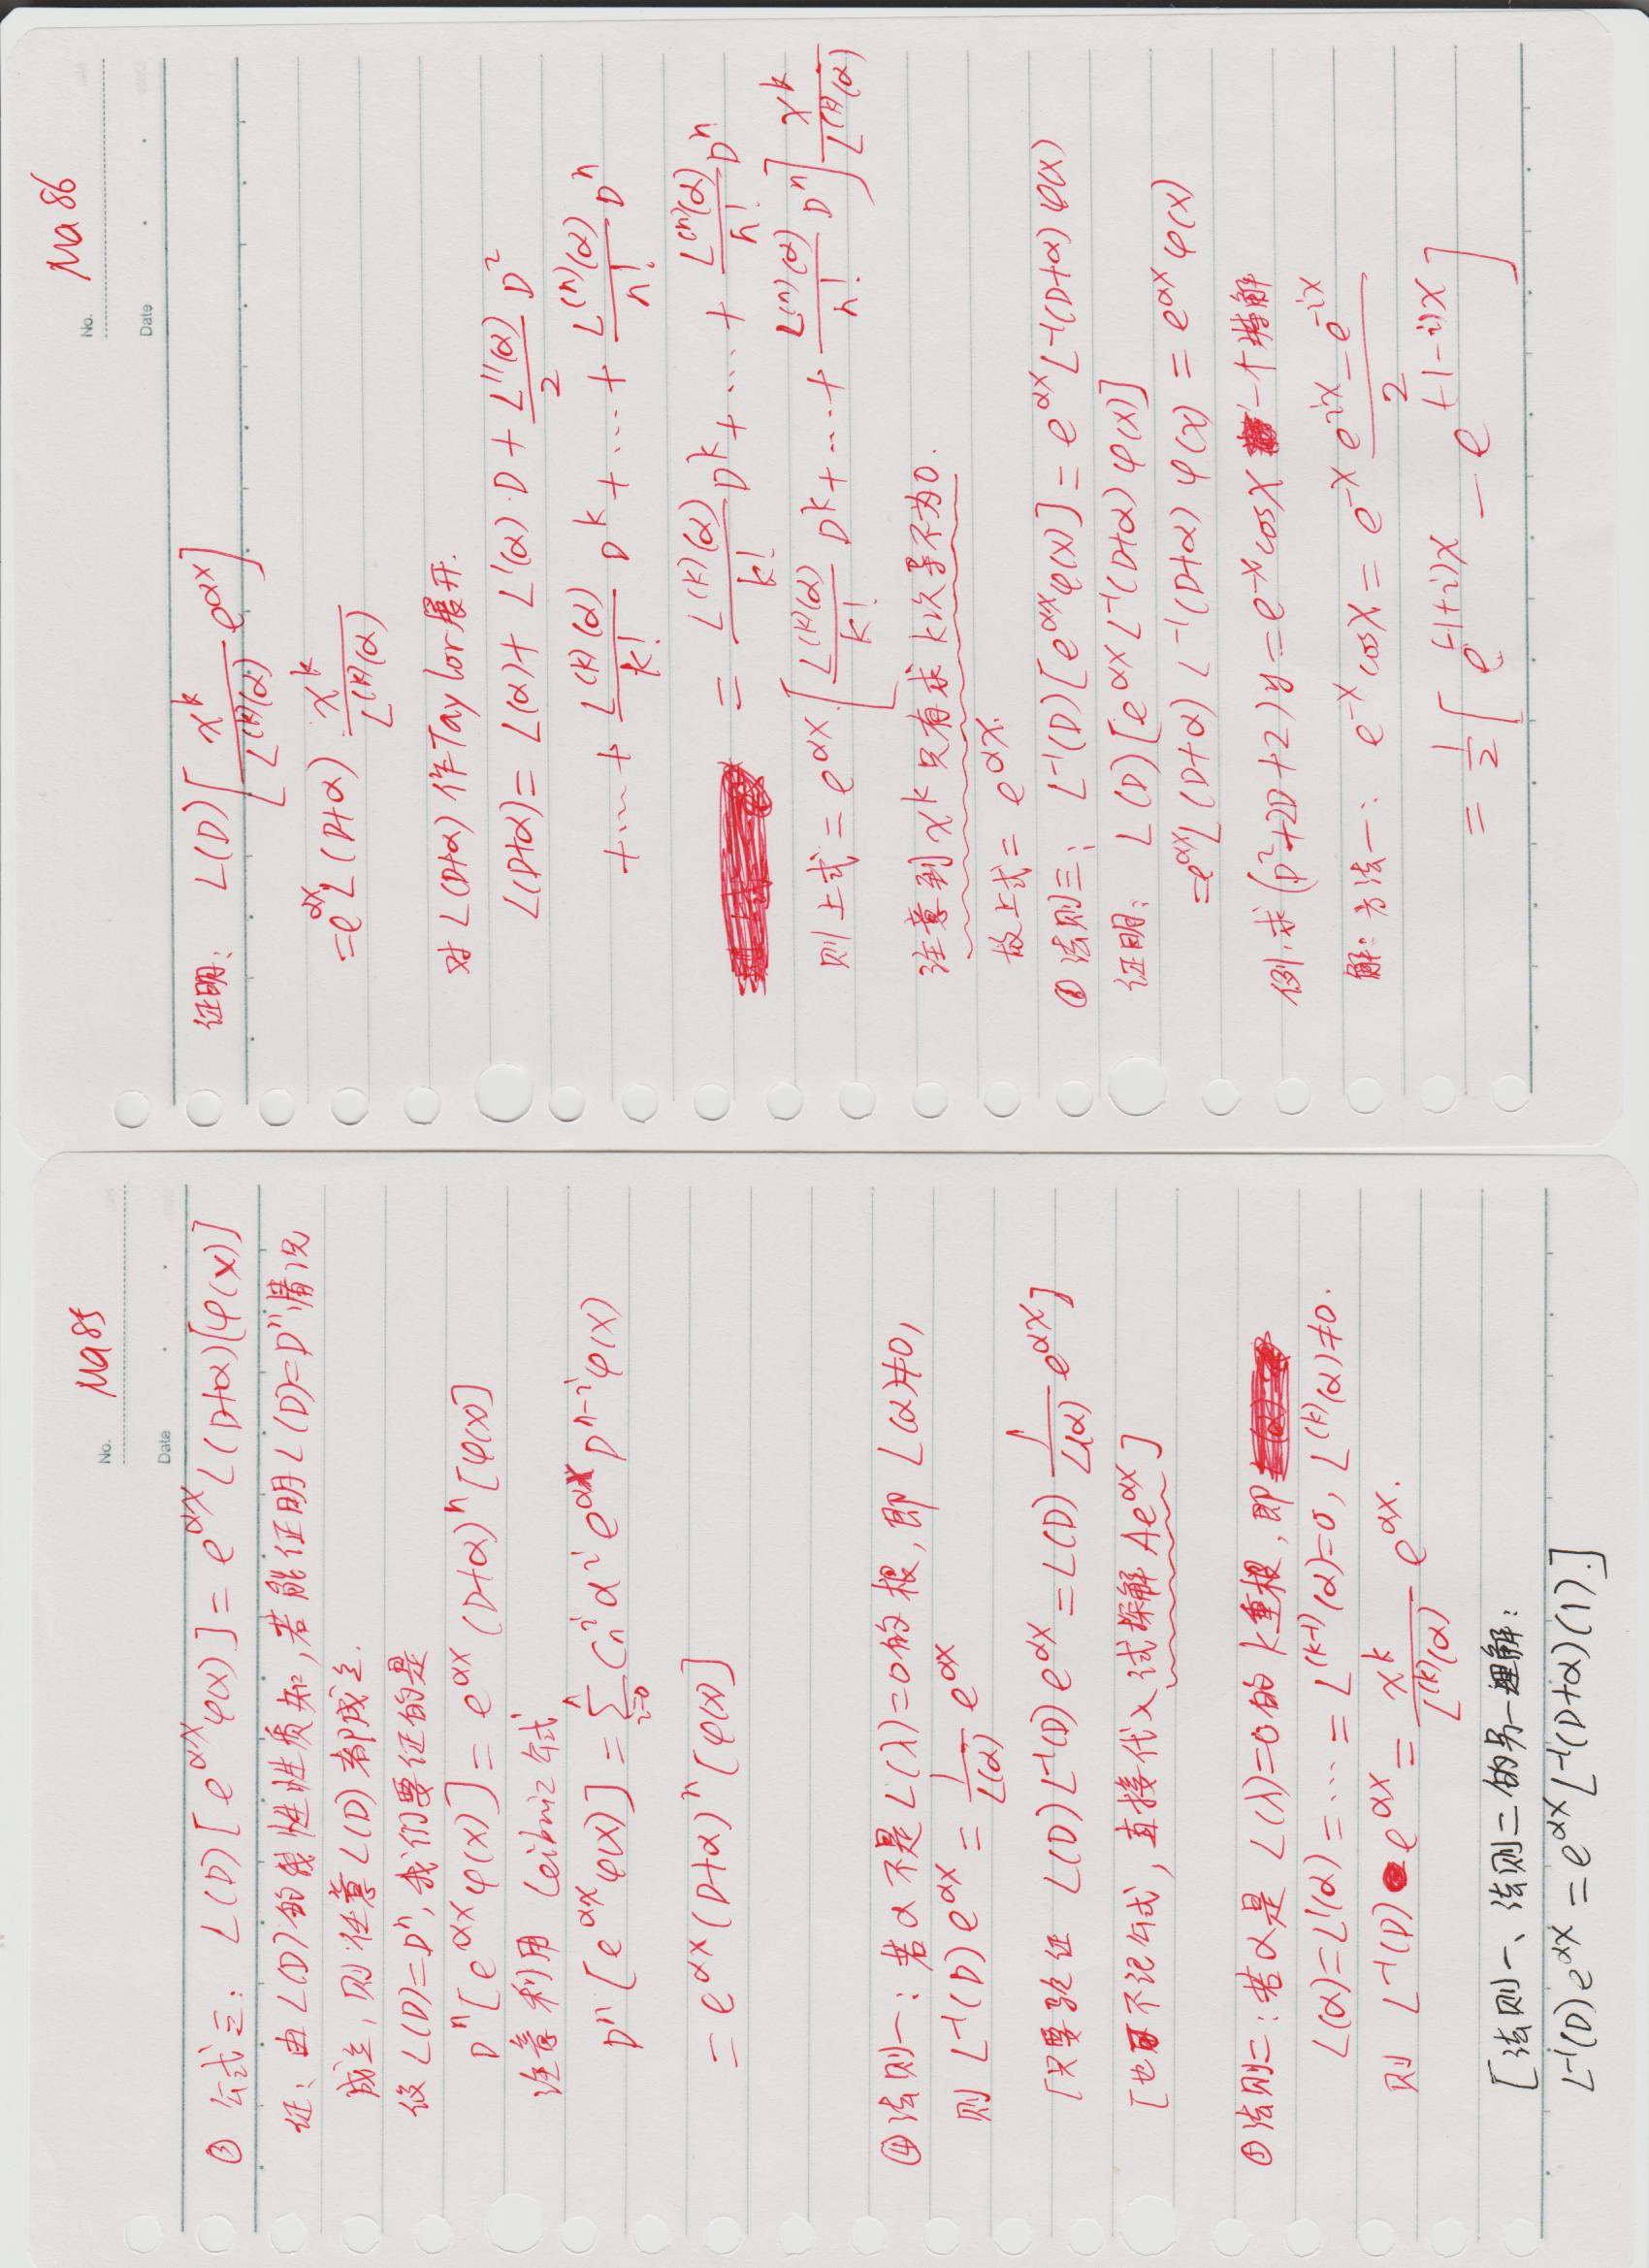 No. Ma85
Date
③ 公式三: L(D)[e^{αx}φ(x)]=e^{αx}L(D+α)[φ(x)]
证: 由L(D)的线性性质知,若能证明L(D)=D^n情况
成立,则任意L(D)都成立.
设L(D)=D^n,我们要证的是
D^n[e^{αx}φ(x)]=e^{αx}(D+α)^n[φ(x)]
注意利用Leibniz公式
D^n[e^{αx}φ(x)]=\sum_{i=0}^{n}C_n^i α^i e^{αx}D^{n-i}φ(x)
=e^{αx}(D+α)^n[φ(x)]
④法则一:若α不是L(λ)=0的根,即L(α)≠0,
则 L^{-1}(D)e^{αx}=\frac{1}{L(α)}e^{αx}
[只要验证 L(D)L^{-1}(D)e^{αx}=L(D)\frac{1}{L(α)}e^{αx}]
[也可不记公式,直接代入试探解Ae^{αx}]
⑤法则二:若α是L(λ)=0的k重根,即
L(α)=L'(α)=…=L^{(k-1)}(α)=0, L^{(k)}(α)≠0.
则 L^{-1}(D)e^{αx}=\frac{x^k}{L^{(k)}(α)}e^{αx}.
[法则一、法则二的另一理解:
L^{-1}(D)e^{αx}=e^{αx}L^{-1}(D+α)(1).]
No. Ma86
Date
证明: L(D)[\frac{x^k}{L^{(k)}(α)}e^{αx}]
=e^{αx}L(D+α)\frac{x^k}{L^{(k)}(α)}
对L(D+α)作Taylor展开.
L(D+α)=L(α)+L'(α)·D+\frac{L''(α)}{2}D^2
+…+\frac{L^{(k)}(α)}{k!}D^k+…+\frac{L^{(n)}(α)}{n!}D^n
=\frac{L^{(k)}(α)}{k!}D^k+…+\frac{L^{(n)}(α)}{n!}D^n
则上式=e^{αx}·[\frac{L^{(k)}(α)}{k!}D^k+…+\frac{L^{(n)}(α)}{n!}D^n]\frac{x^k}{L^{(k)}(α)}
注意到x^k只有求k次导不为0.
故上式=e^{αx}.
⑥法则三: L^{-1}(D)[e^{αx}φ(x)]=e^{αx}L^{-1}(D+α)φ(x)
证明: L(D)[e^{αx}L^{-1}(D+α)φ(x)]
=e^{αx}L(D+α)L^{-1}(D+α)φ(x)=e^{αx}φ(x)
例.求(D^2+2D+2)y=e^{-x}cosx一个特解
解:方法一: e^{-x}cosx=e^{-x}\frac{e^{ix}-e^{-ix}}{2}
=\frac{1}{2}[e^{(-1+i)x}-e^{(-1-i)x}]